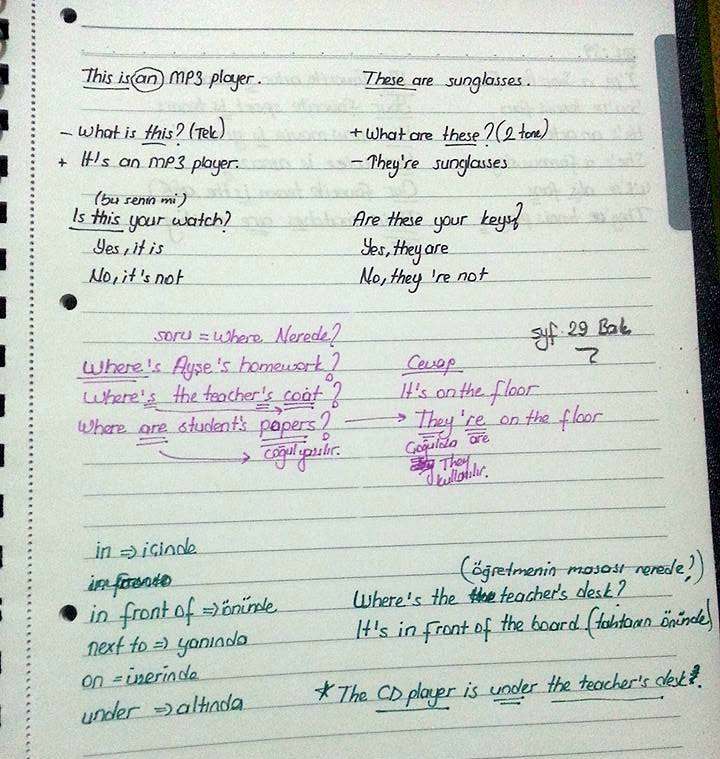 This is an MP3 player.
These are sunglasses.
- What is this? (Tek)
+ What are these? (2 tane)
+ It's an MP3 player.
- They're sunglasses
(bu senin mi)
Is this your watch?
Are these your keys?
Yes, it is
Yes, they are
No, it's not
No, they 're not
soru = Where Nerede?
syf 29 Bak
Where's Ayşe's homework?
Cevap
Where's the teacher's coat?
It's on the floor
Where are student's papers? → They're on the floor
çoğul yazılır.
Çoğulda are
They
kullanılır.
in => içinde
(öğretmenin masası nerede?)
in front of => önünde
Where's the teacher's desk?
next to => yanında
It's in front of the board (tahtanın önünde)
on = üzerinde
* The CD player is under the teacher's desk.
under => altında